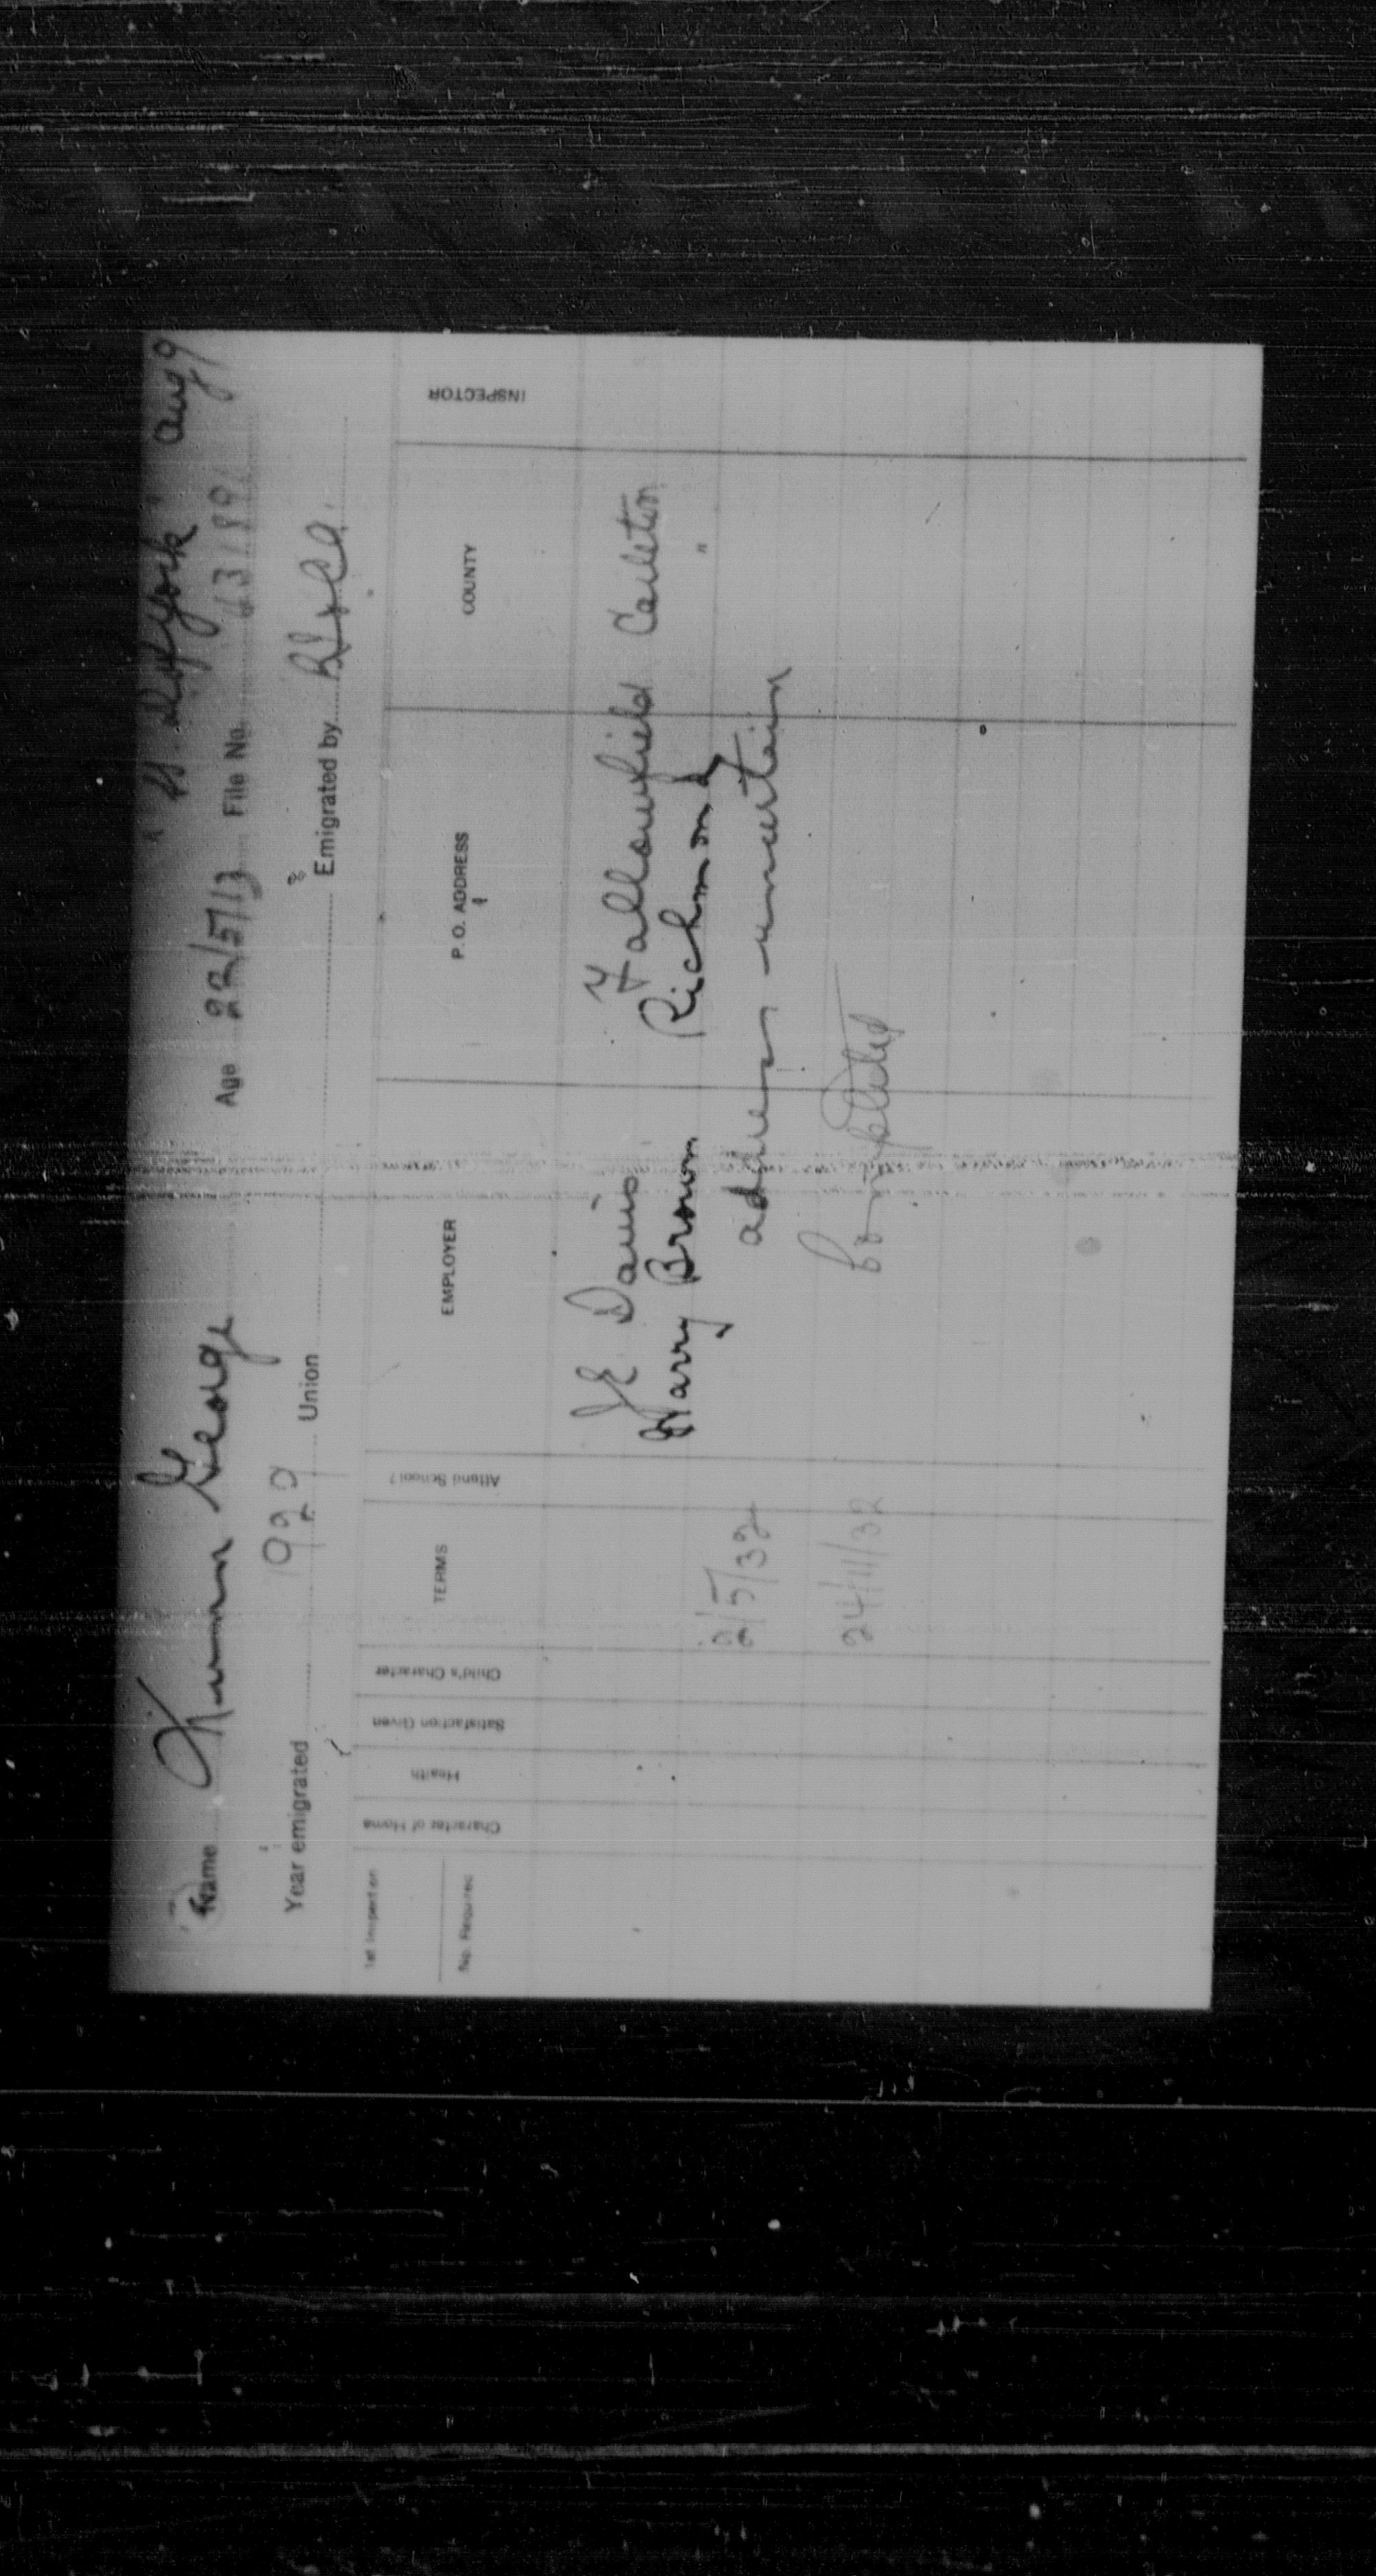 D of York Aug 9
Name George Age 22/5/13 File No.
Year emigrated 1929 Union Emigrated by
1st Inspection No. Required Character of Home Health Satisfaction Given Child's Character TERMS Attend School? EMPLOYER P. O. ADDRESS COUNTY INSPECTOR
J E Davis Fallowfield Carleton
Harry Brown Richmond "
2/5/32 address uncertain
24/11/32 Completed